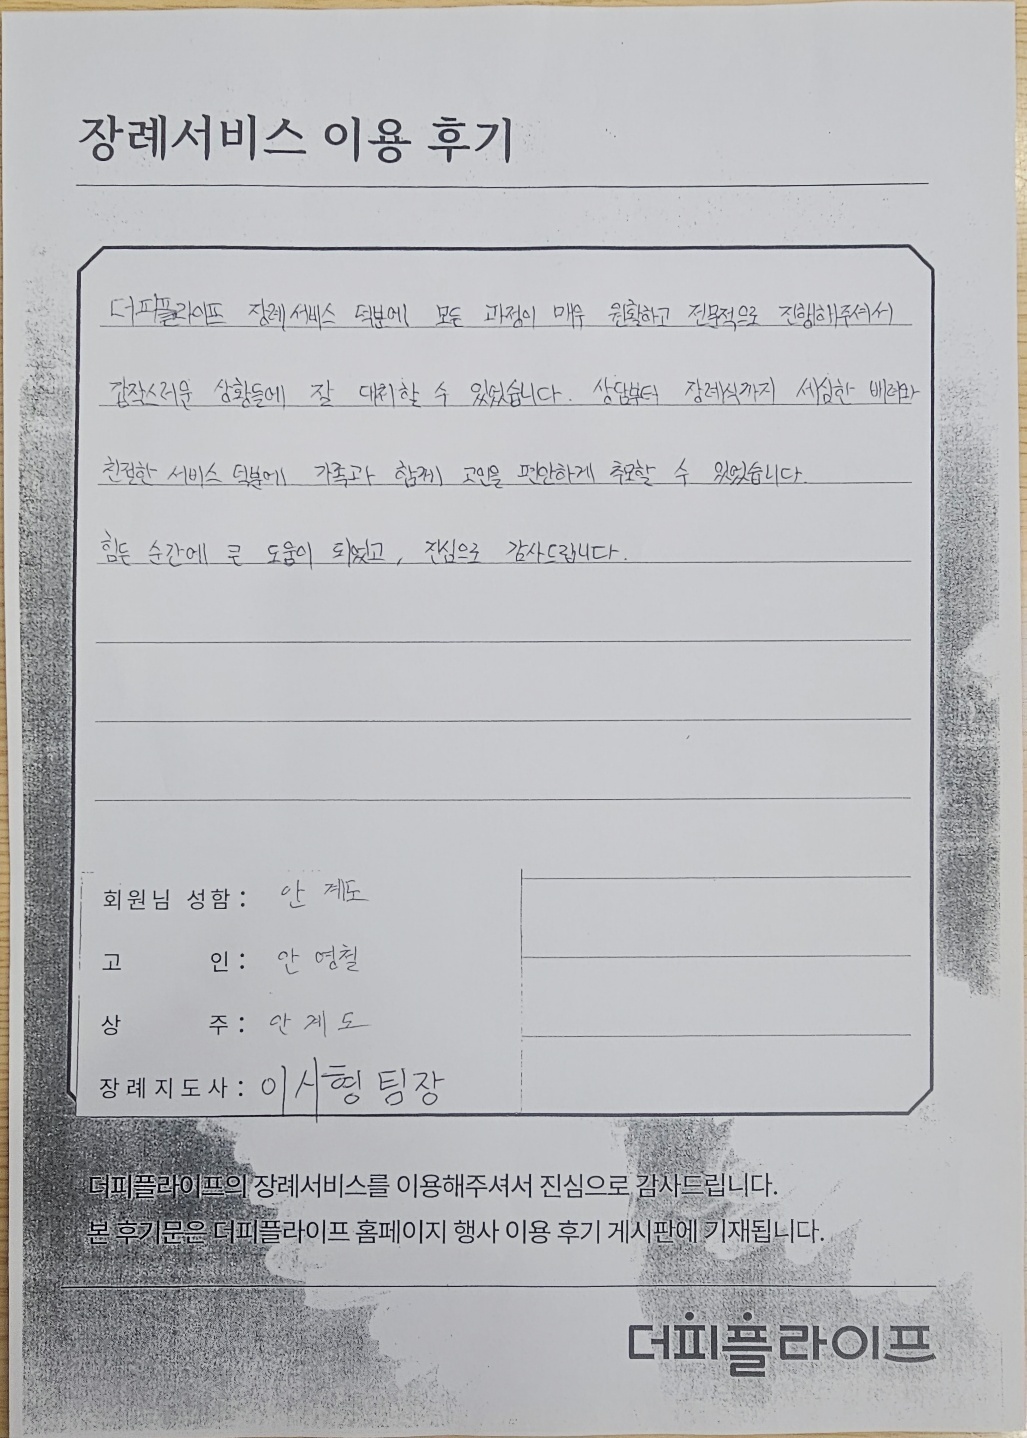 장례서비스 이용 후기
더피플라이프 장례서비스 덕분에 모든 과정이 매우 원활하고 전문적으로 진행해주셔서
갑작스러운 상황들에 잘 대처할 수 있었습니다. 상담부터 장례식까지 세심한 배려와
친절한 서비스 덕분에 가족과 함께 고인을 편안하게 추모할 수 있었습니다.
힘든 순간에 큰 도움이 되었고, 진심으로 감사드립니다.
회원님 성함 : 안계도
고 인 : 안영철
상 주 : 안계도
장례지도사 : 이시형 팀장
더피플라이프의 장례서비스를 이용해주셔서 진심으로 감사드립니다.
본 후기문은 더피플라이프 홈페이지 행사 이용 후기 게시판에 기재됩니다.
더피플라이프